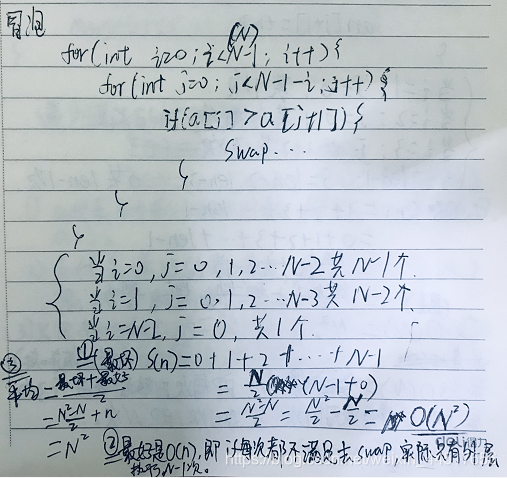 冒泡
(N)
for(int i=0; i<N-1; i++){
for(int j=0; j<N-1-i; j++){
if(a[j]>a[j+1]){
swap...
}
}
}
当i=0, j=0,1,2...N-2 共N-1个.
当i=1, j=0,1,2...N-3 共N-2个.
当i=N-2, j=0, 共1个.
①(最坏) S(n)=0+1+2+...+N-1
= N/2 (N-1+0)
= (N²-N)/2 = N²/2 - N/2 = O(N²)
③
平均=(最坏+最好)/2
= (N²-N)/2 + n
= N²
②最好是O(n), 即 每次都不满足去swap, 实际只有外层
执行N-1次.
https://blog.